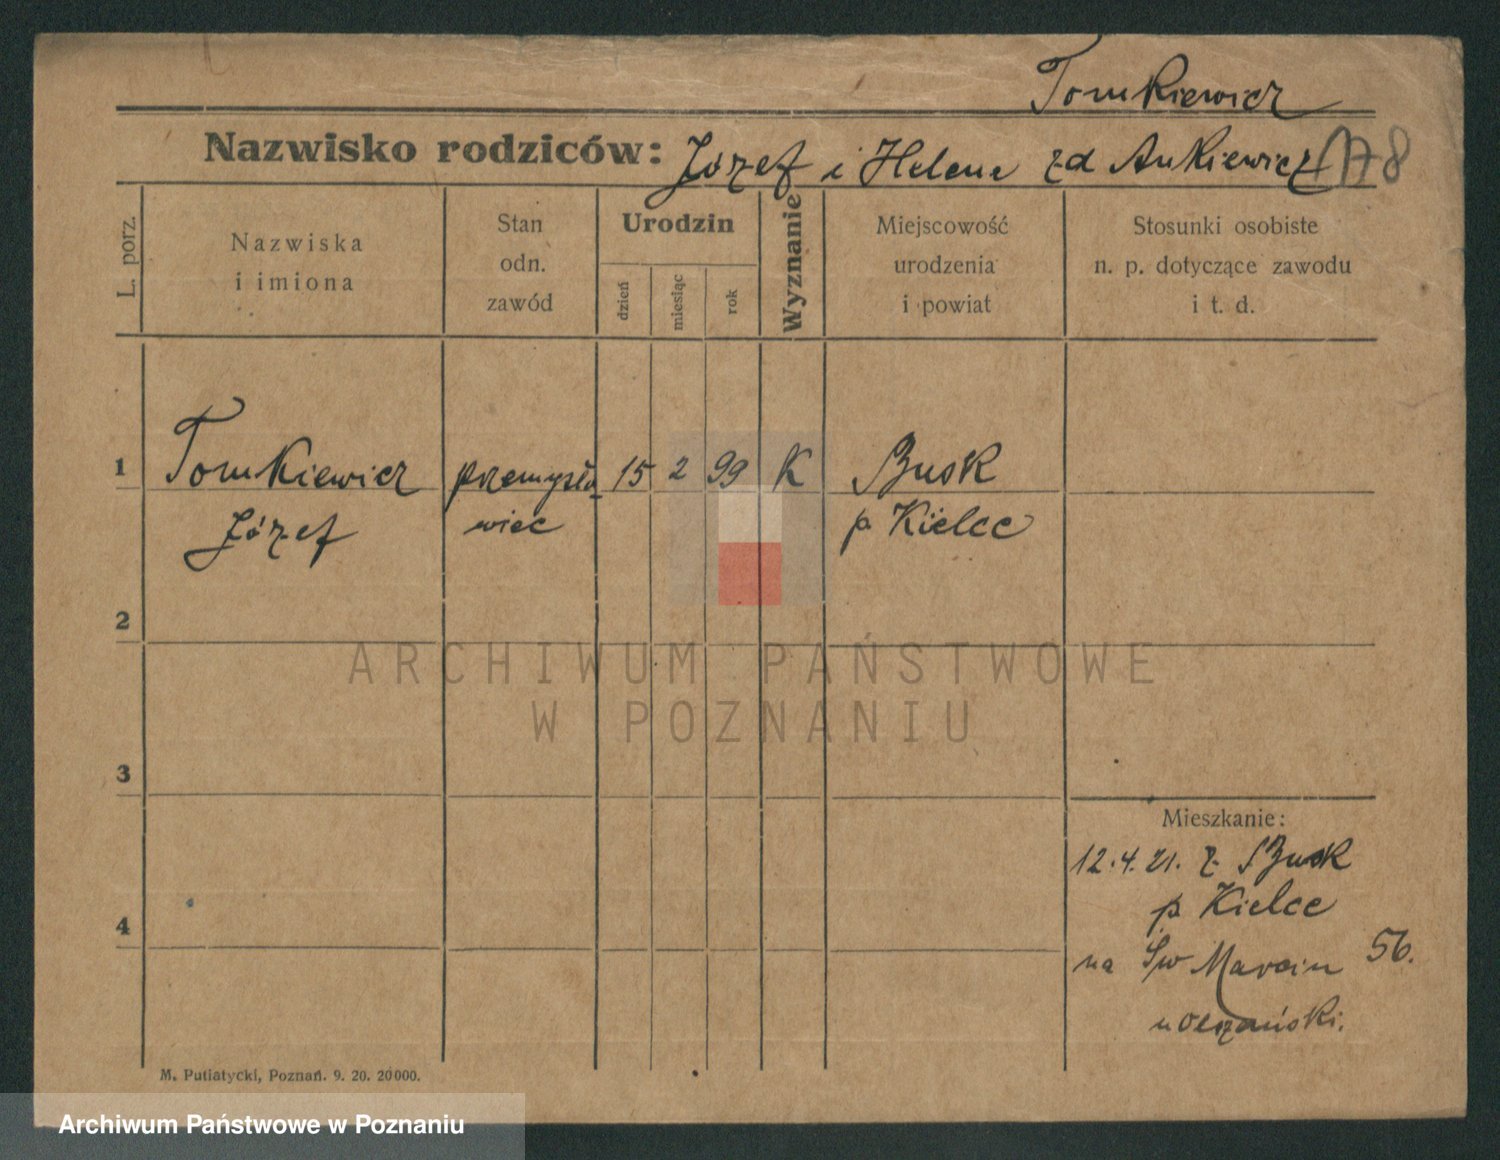 Tomkiewicz
Nazwisko rodziców: Józef i Helene zd Ankiewicz 178
L. porz.
Nazwiska
i imiona
Stan
odn.
zawód
Urodzin
dzień
miesiąc
rok
Wyznanie
Miejscowość
urodzenia
i powiat
Stosunki osobiste
n. p. dotyczące zawodu
i t. d.
1 Tomkiewicz przemysło 15 2 99 K Busk
Józef wiec p. Kielce
2
3
Mieszkanie:
12.4.21. z Busk
p Kielce
4
na Św Marcin 56.
u
M. Putiatycki, Poznań. 9. 20. 20000.
ARCHIWUM PAŃSTWOWE
W POZNANIU
Archiwum Państwowe w Poznaniu